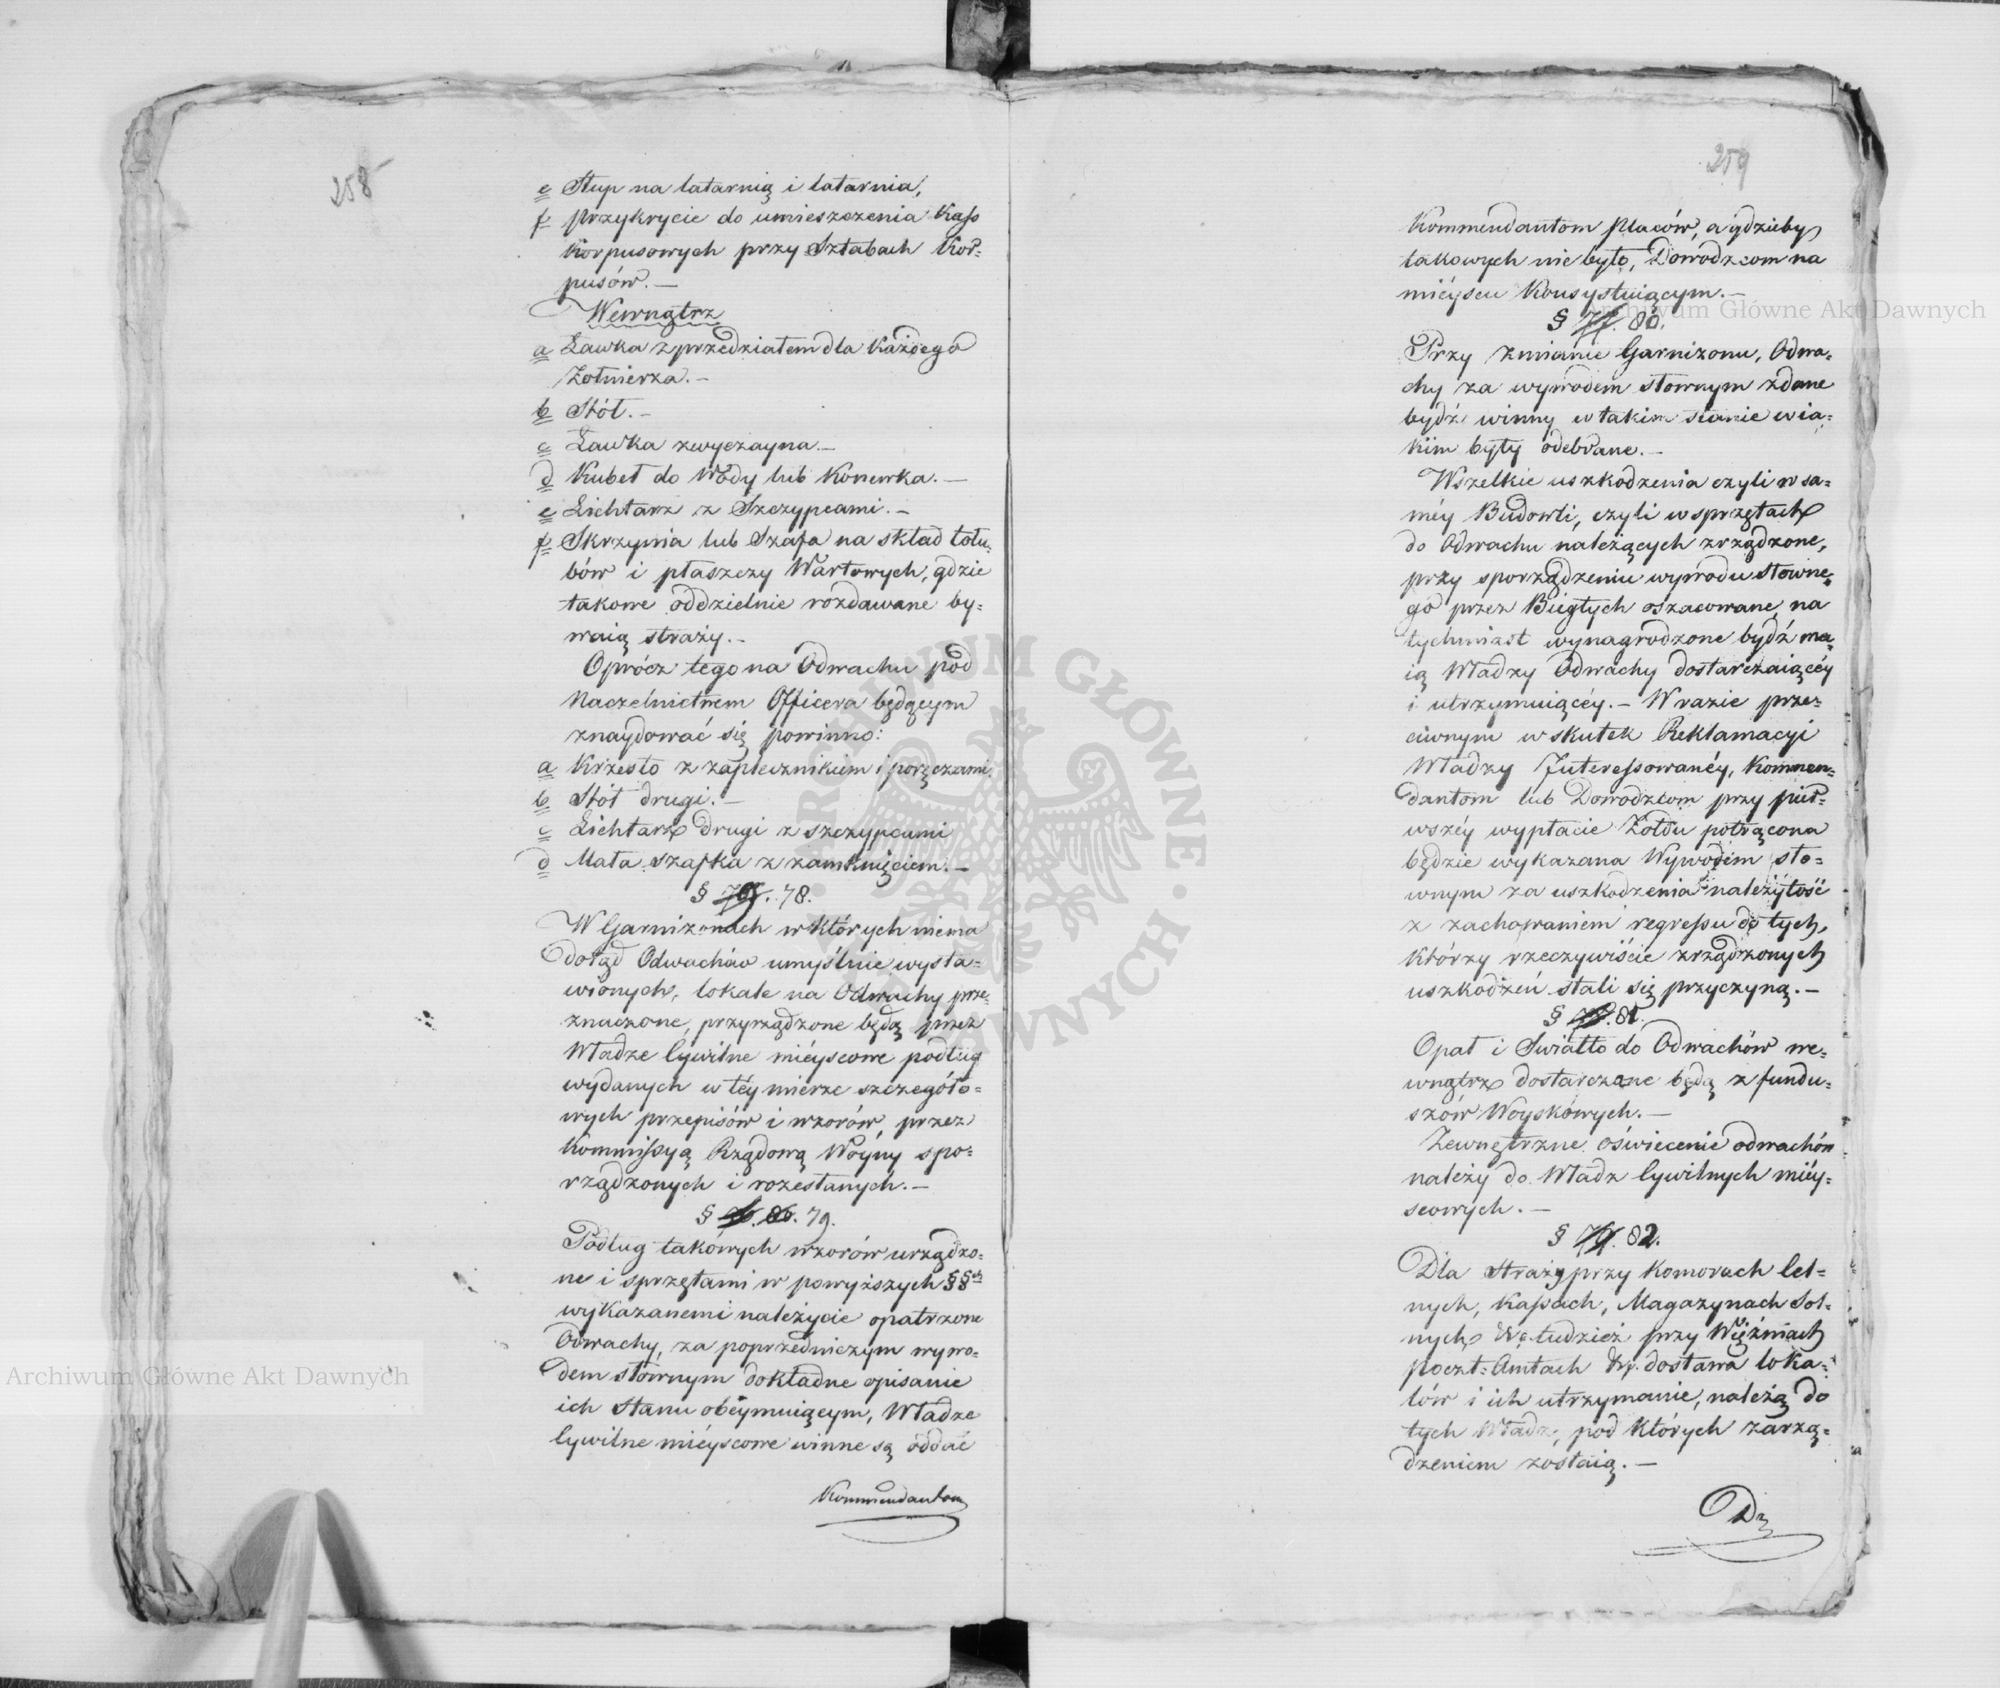 258
e Słup na latarnią i latarnia,
f przykrycie do umieszczenia Kass
Korpusowych przy Sztabach Kor-
pusów. —
Wewnątrz
a Ławka z przedziałem dla Każdego
Żołnierza. —
b Stół. —
c Ławka zwyczayna. —
d Kubeł do Wody lub Konewka. —
e Lichtarz z Szczypcami. —
f Skrzynia lub Szafa na skład tołu-
bów i płaszczy Wartowych, gdzie
takowe oddzielnie rozdawane by-
waią straży. —
Oprócz tego na Odwachu pod
Naczelnictwem Officera będącym
znaydować się powinno:
a Krzesło z zapiecznikiem i poręczami
b Stół drugi. —
c Lichtarz drugi z szczypcami
d Mała szafka z zamknięciem. —
§ 78.
W Garnizonach w których niema
dotąd Odwachów umyślnie wysta-
wionych, lokale na Odwachy prze-
znaczone, przyrządzone będą przez
Władze Cywilne mieyscowe podług
wydanych w téy mierze szczegóło-
wych przepisów i wzorów, przez
Kommissyą Rządową Woyny spo-
rządzonych i rozesłanych. —
§ 76. 80. 79.
Podług takowych wzorów urządzo-
ne i sprzętami w powyższych §§ch
wykazanemi należycie opatrzone
Odwachy, za poprzedniczym wywo-
dem słownym dokładne opisanie
ich stanu obéymuiącym, Władze
Cywilne miéyscowe winne są oddać
Kommendantom
259
Kommendantom Placów, a gdzieby
takowych nie było, Dowodzcom na
miéyscu Konsystuiącym. —
§ 77. 80.
Przy zmianie Garnizonu, Odwa-
chy za wywodem słownym zdane
bydź winny w takim stanie w ia-
kim były odebrane. —
Wszelkie uszkodzenia czyli w sa-
méy Budowli, czyli w sprzętach
do Odwachu należących zrządzone,
przy sporządzeniu wywodu słowne-
go przez Biegłych oszacowane, na
tychmiast wynagrodzone bydź ma-
ią Władzy Odwachy dostarczaiącéy
i utrzymuiącéy. — W razie prze-
ciwnym w skutek Reklamacyi
Władzy Interessowanéy, Kommen-
dantom lub Dowodzcom przy pier-
wszéy wypłacie Żołdu potrącona
będzie wykazana Wywodem sło-
wnym za uszkodzenia należytość
z zachowaniem regressu do tych,
którzy rzeczywiście zrządzonych
uszkodzeń stali się przyczyną. —
§ 78. 81.
Opał i Światło do Odwachów we-
wnątrz dostarczane będą z fundu-
szów Woyskowych. —
Zewnętrzne oświecenie odwachów
należy do Władz Cywilnych miéy-
scowych. —
§ 79. 82.
Dla straży przy Komorach Cel-
nych, Kassach, Magazynach Sol-
nych &c. tudzież przy Więźniach
poczt-Amtach &c. dostawa loka-
lów i ich utrzymanie, należą do
tych Władz, pod których zarzą-
dzeniem zostaią. —
Archiwum Główne Akt Dawnych
Archiwum Główne Akt Dawnych
ARCHIWUM GŁÓWNE AKT DAWNYCH